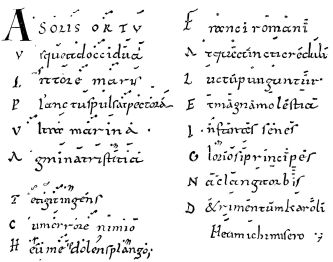 A SOLIS ORTU
usque ad occidua
Littore maris
Planctus pulsat pectora
Ultra marina
Agmina tristitia
Tetigit ingens
Cum errore nimio
Heu me dolens plango
Franci romani
Atque cuncti creduli
Luctu punguntur
Et magna molestia
Infantes senes
Gloriosi principes
Nam clangit orbis
Detrimentum karoli
Heu mihi misero